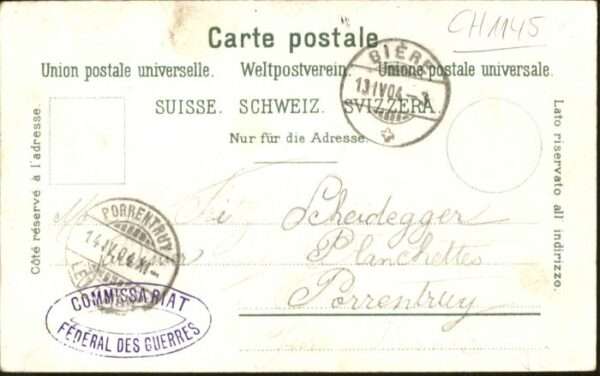 CH1145
Carte postale
Union postale universelle. Weltpostverein. Unione postale universale.
SUISSE. SCHWEIZ. SVIZZERA.
Nur für die Adresse.
Côté réservé à l'adresse.
Lato riservato all' indirizzo.
BIÈRE
13 IV 04
PORRENTRUY
14. IV. 04. XI
Scheidegger
Planchettes
Porrentruy
COMMISSARIAT
FÉDÉRAL DES GUERRES